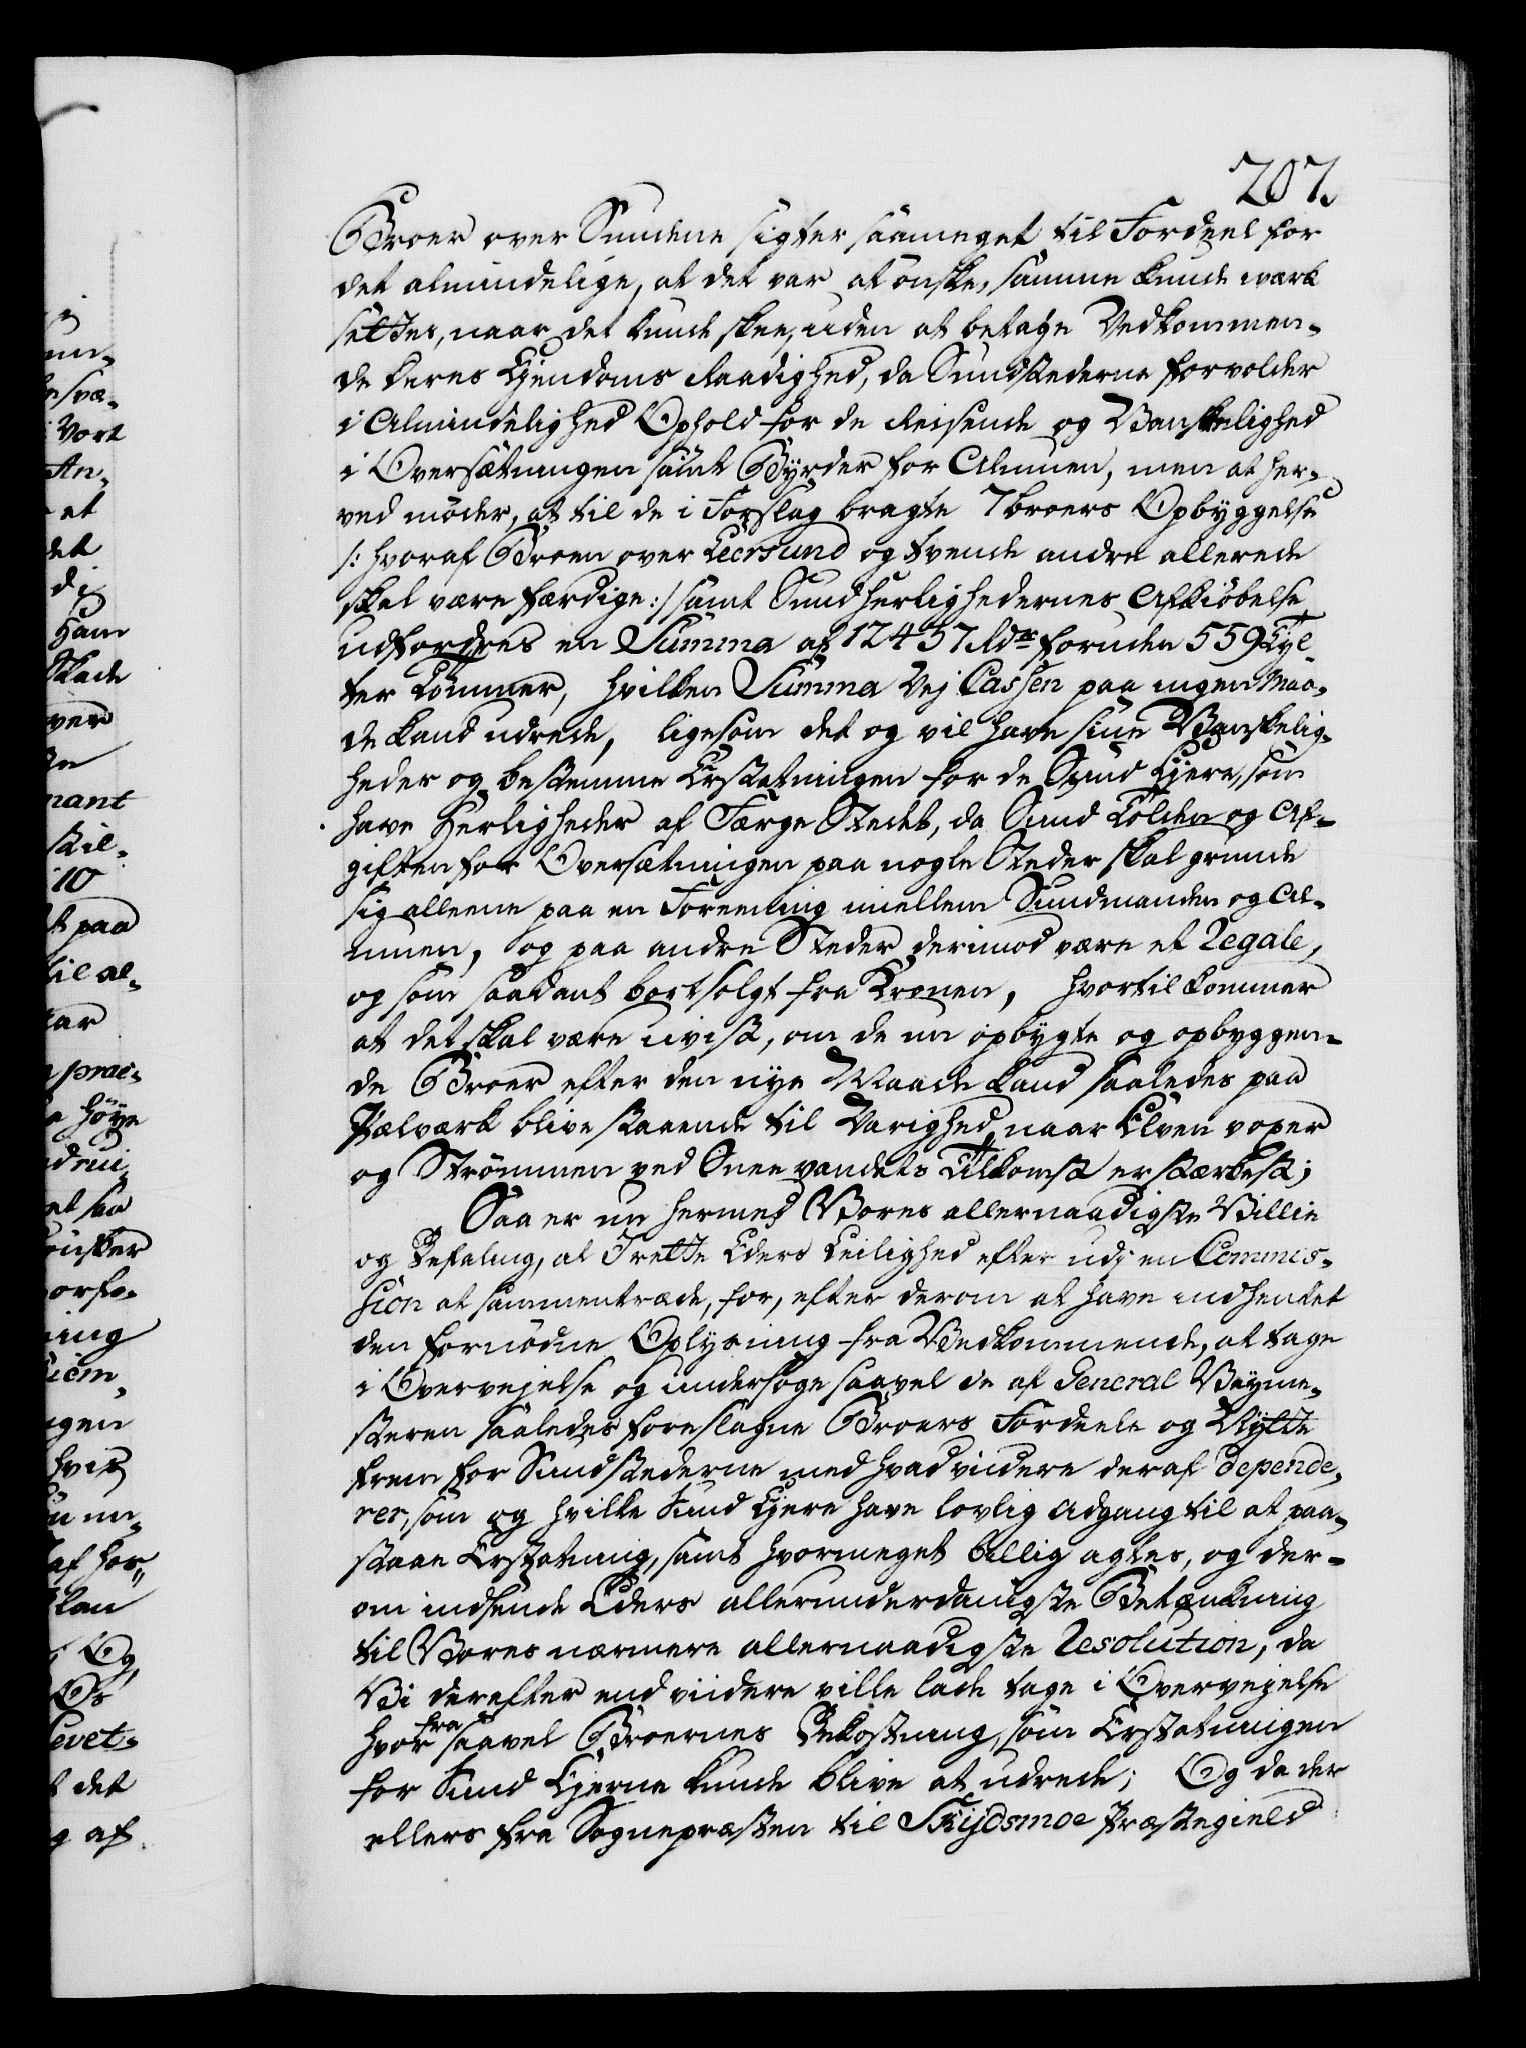 207.
Broer over Sundene sigter saameget til Fordeel for
det almindelige, at det var at önske, samme kunde værk
settes, naar det kunde skee, uden at betage Vedkommen-
de deres Ejendoms Raadighed, da Sundstederne forvolder
i Almindelighed Ophold for de Reisende og Vanskelighed
i Oversætningen samt Byrder for Almuen, men at her-
ved möder, at til de i Forslag bragte 7 broers Opbyggelse
/: hvoraf Broen over Leersund og tvende andre allerede
skal være færdige :/ samt Sundherlighedernes Afkiöbelse
udfordres en Summa af 12437 Rdr foruden 559 Tyl-
ter Tömmer, hvilken Summa Vej Cassen paa ingen Maa-
de kand udrede, ligesom det og vil have sine Vanskelig-
heder og bestemme Erstatningen for de Sund Ejere, som
have Herligheder af Færge Stedet, da Sund Tolden og Af-
giften for Oversætningen paa nogle Steder skal grunde
sig alleene paa en Foreening imellem Sundmanden og Al-
muen, og paa andre Steder derimod være et Regale,
og som saadant bortsolgt fra Kronen, hvortil kommer
at det skal være uvist, om de nu opbygte og opbyggen-
de Broer efter den nye Maade kand saaledes paa
Pælværk blive staaende til Varighed, naar Elven voxer
og Strömmen ved Sneevandets Tilkomst er stærkest;
Saa er nu hermed Vores allernaadigste Villie
og Befaling, at I rette Eders Leilighed efter udj en Commis-
sion at sammentræde, for, efter derom at have indhentet
den fornödne Oplysning fra Vedkommende, at tage
i Overvejelse og undersöge saavel de af General Vejme-
steren saaledes foreslagne Broers Fordeele og Nytte
frem for Sundstederne med hvad viidere deraf depende-
rer, som og hvilke Sund Ejere have lovlig Adgang til at paa-
staae Erstatning, samt hvormeget billig agtes, og der-
om indsende Eders allerunderdanigste Betænkning
til Vores nærmere allernaadigste Resolution, da
Vi derefter end viidere ville lade tage i Overvejelse
hvorfra saavel Broernes Bekostning, som Erstatningen
for Sund Ejerne kunde blive at udrede; Og da der
ellers fra Sognepræsten til Skijdsmoe Præstegield